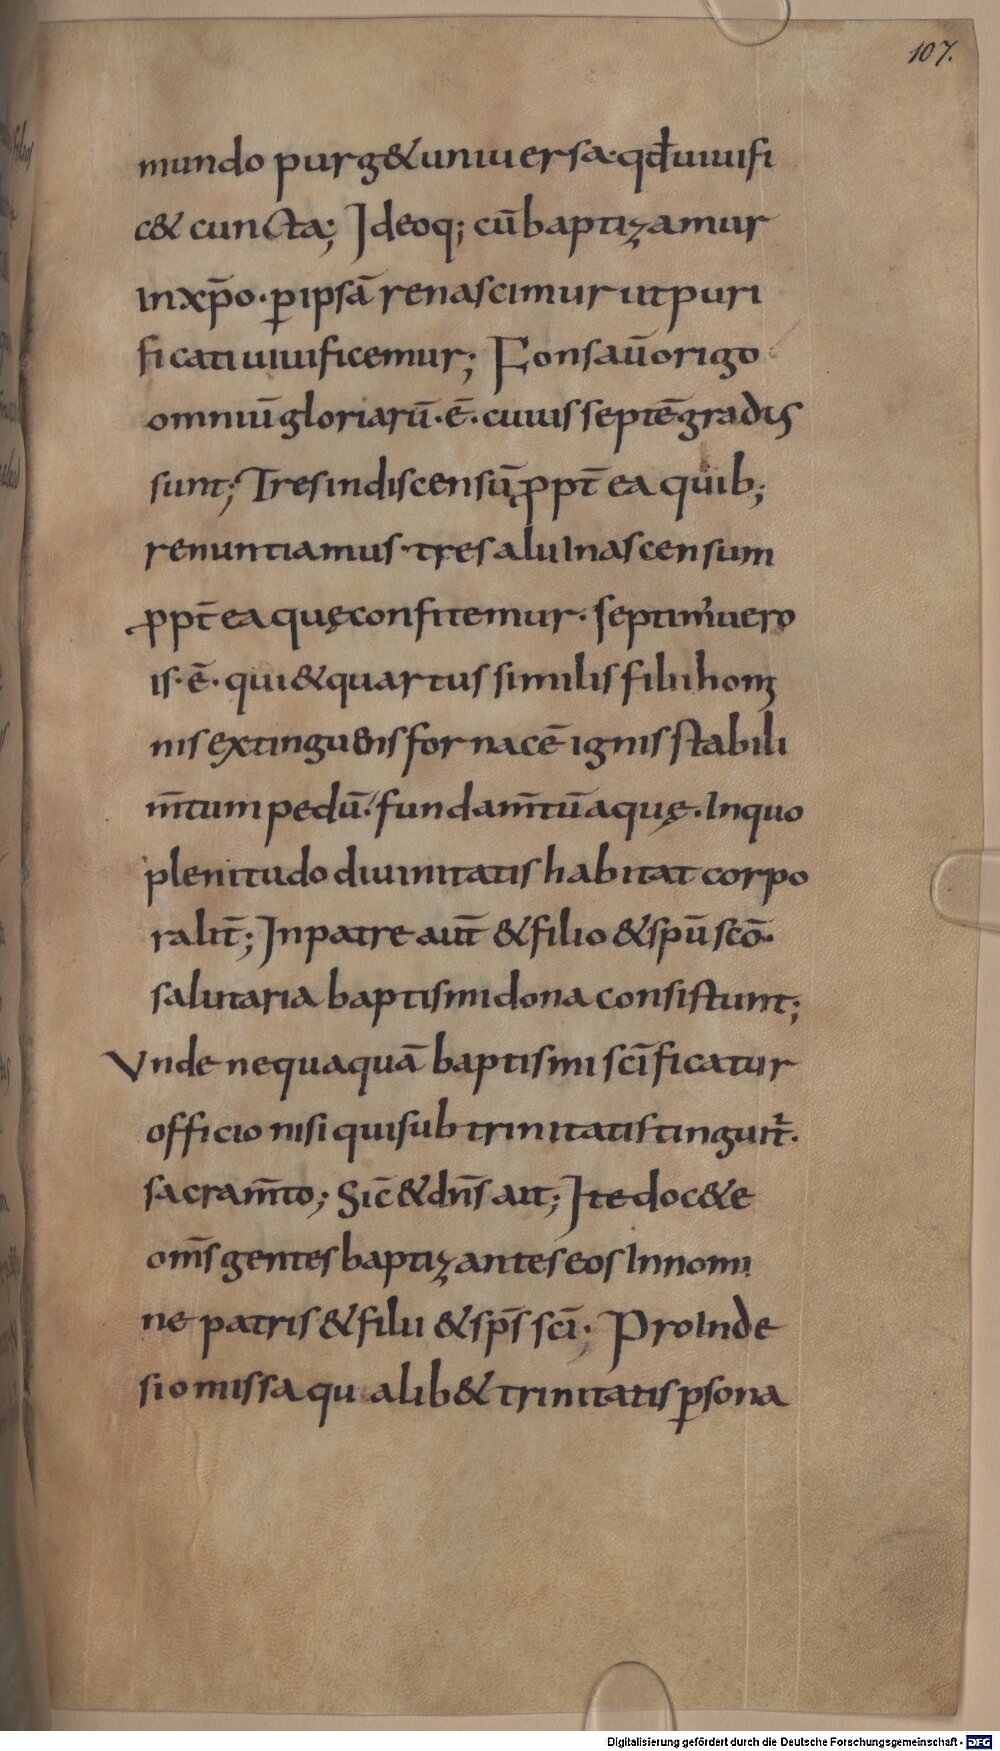 107.
mundo purg&uniuersa·qđuiuifi
c& cuncta; Ideoq; cūbaptizamur
Inxp̄o·ꝑipsā renascimur utpuri
ficatiuiuificemur; Fonsaūorigo
omniūgloriarū·ē·cuiusseptēgradus
sunt; Tresindiscensū ꝓpt̄ ea quib;
renuntiamus·tresaluInascensum
ꝓpt̄ ea quęconfitemur·septim'uero
is·ē·qui&quartus similisfiliihomi
nisextinguensfornacē ignisstabili
m̄tumpedū·fundam̄tūaquę·Inquo
plenitudodiuinitatishabitatcorpo
ralit̄; Inpatreaut̄ &filio&spūscō·
salutaria baptismidonaconsistunt;
Vnde nequaquā baptismiscīficatur
officionisiquisubtrinitatistinguit̄·
sacram̄to; Sic̄&dn̄sait; Itedoc&e
om̄sgentesbaptizanteseosInnomi
ne patris&filii&sp̄sscī; ProInde
siomissaqualib&trinitatisꝑsona
Digitalisierung gefördert durch die Deutsche Forschungsgemeinschaft - DFG